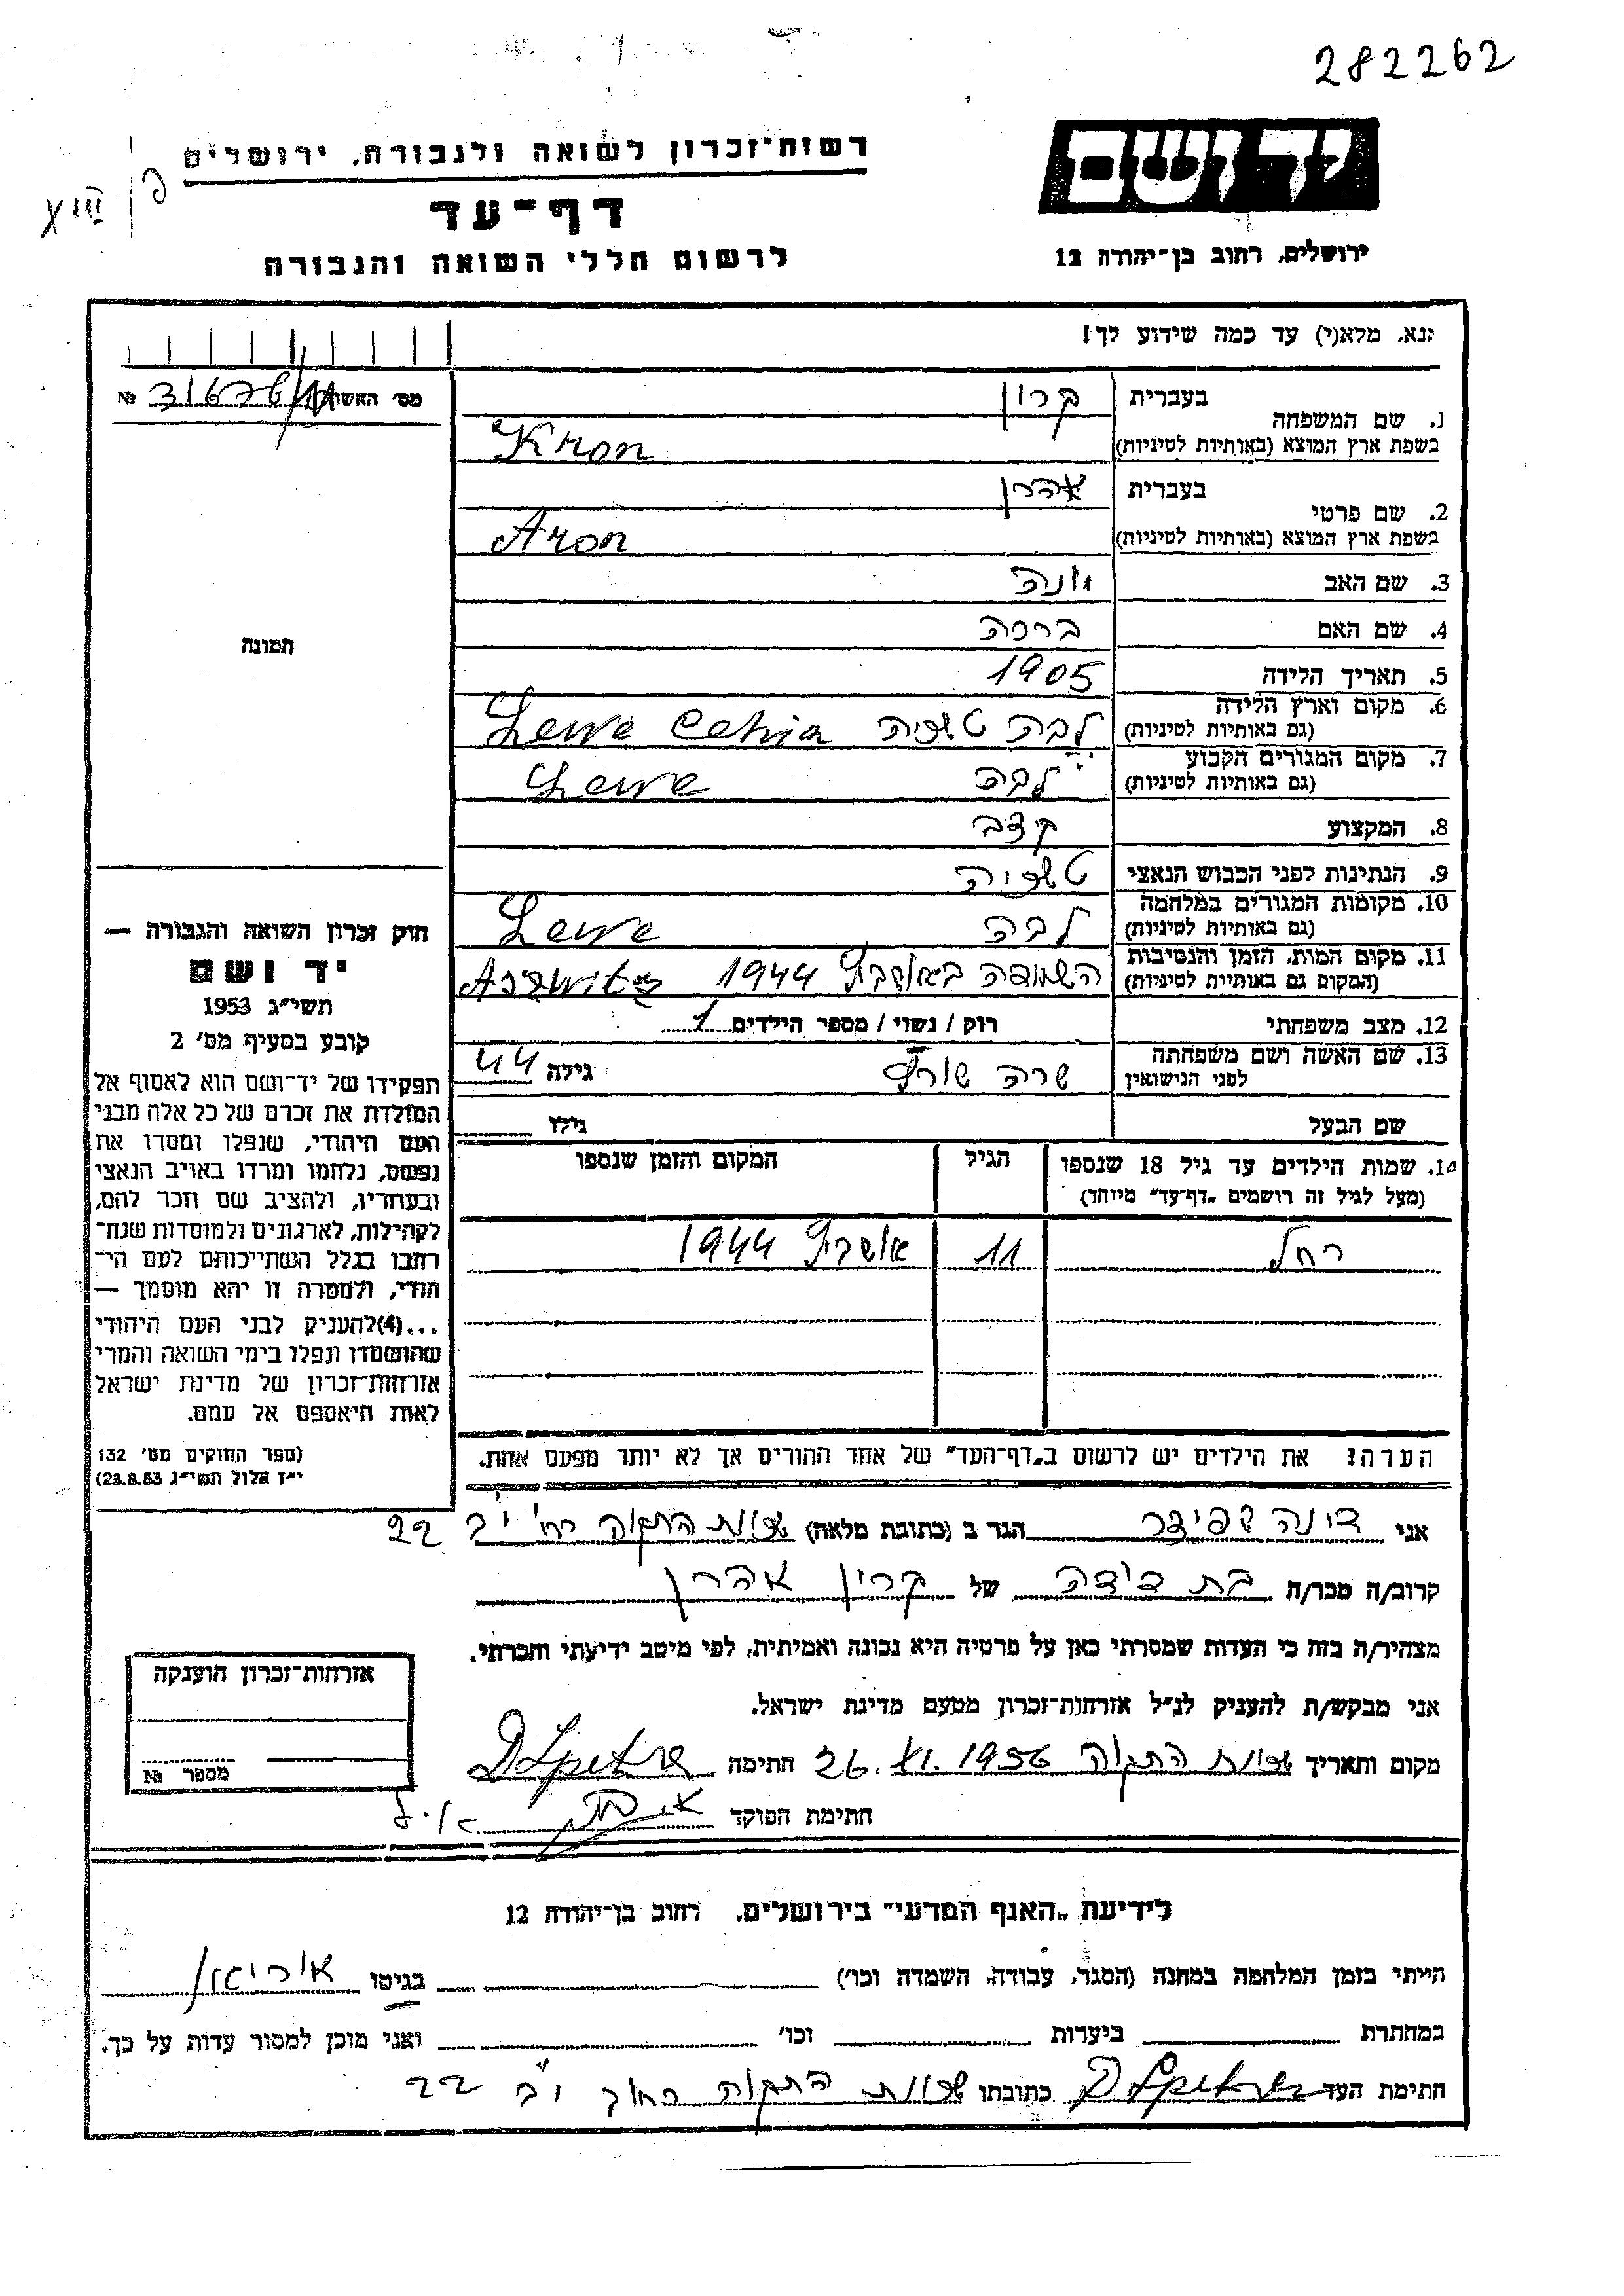 282262
יד ושם
רשות־זכרון לשואה ולגבורה, ירושלים
XIII
דף־עד
לרשום חללי השואה והגבורה
ירושלים, רחוב בן־יהודה 12
נא, מלא(י) עד כמה שידוע לך!
מס' האשה №
1. שם המשפחה
בעברית קרון
בשפת ארץ המוצא (באותיות לטיניות) Kron
2. שם פרטי
בעברית אהרן
בשפת ארץ המוצא (באותיות לטיניות) Aron
3. שם האב יונה
4. שם האם ברכה
5. תאריך הלידה 1905
6. מקום וארץ הלידה
(גם באותיות לטיניות) לבה Lewe
7. מקום המגורים הקבוע
(גם באותיות לטיניות) לבה Lewe
8. המקצוע קצב
9. הנתינות לפני הכבוש הנאצי
10. מקומות המגורים במלחמה
(גם באותיות לטיניות) לבה Lewe
11. מקום המות, הזמן והנסיבות
(המקום גם באותיות לטיניות) 1944
12. מצב משפחתי רוק / נשוי / מספר הילדים 1
13. שם האשה ושם משפחתה
לפני הנישואין שרה גילה 44
שם הבעל גילו
14. שמות הילדים עד גיל 18 שנספו
(מעל לגיל זה רושמים „דף־עד" מיוחד)
הגיל
המקום והזמן שנספו
רחל 11 1944
הערה: את הילדים יש לרשום ב„דף־העד" של אחד ההורים אך לא יותר מפעם אחת.
תמונה
חוק זכרון השואה והגבורה —
יד ושם
תשי"ג 1953
קובע בסעיף מס' 2
תפקידו של יד־ושם הוא לאסוף אל
המולדת את זכרם של כל אלה מבני
העם היהודי, שנפלו ומסרו את
נפשם, נלחמו ומרדו באויב הנאצי
ובעוזריו, ולהציב שם וזכר להם,
לקהילות, לארגונים ולמוסדות שנח־
רבו בגלל השתייכותם לעם הי־
הודי, ולמטרה זו יהא מוסמך —
...(4)להעניק לבני העם היהודי
שהושמדו ונפלו בימי השואה והמרי
אזרחות־זכרון של מדינת ישראל
לאות היאספם אל עמם.
(ספר החוקים מס' 132
י"ז אלול תשי"ג 28.8.53)
אני הגר ב (כתובת מלאה) שכונת התקוה רח' י"ב 22
קרוב/ה מכר/ה בת דודה של קרון אהרן
מצהיר/ה בזה כי העדות שמסרתי כאן על פרטיה היא נכונה ואמיתית, לפי מיטב ידיעתי והכרתי.
אני מבקש/ת להעניק לנ"ל אזרחות־זכרון מטעם מדינת ישראל.
מקום ותאריך שכונת התקוה 26.XI.1956 חתימה
חתימת הפוקד
אזרחות־זכרון הוענקה
מספר №
לידיעת „האגף המדעי" בירושלים, רחוב בן־יהודה 12
הייתי בזמן המלחמה במחנה (הסגר, עבודה, השמדה וכו') בגיטו
במחתרת ביערות וכו' ואני מוכן למסור עדות על כך.
חתימת העד כתובתו שכונת התקוה רחוב י"ב 22